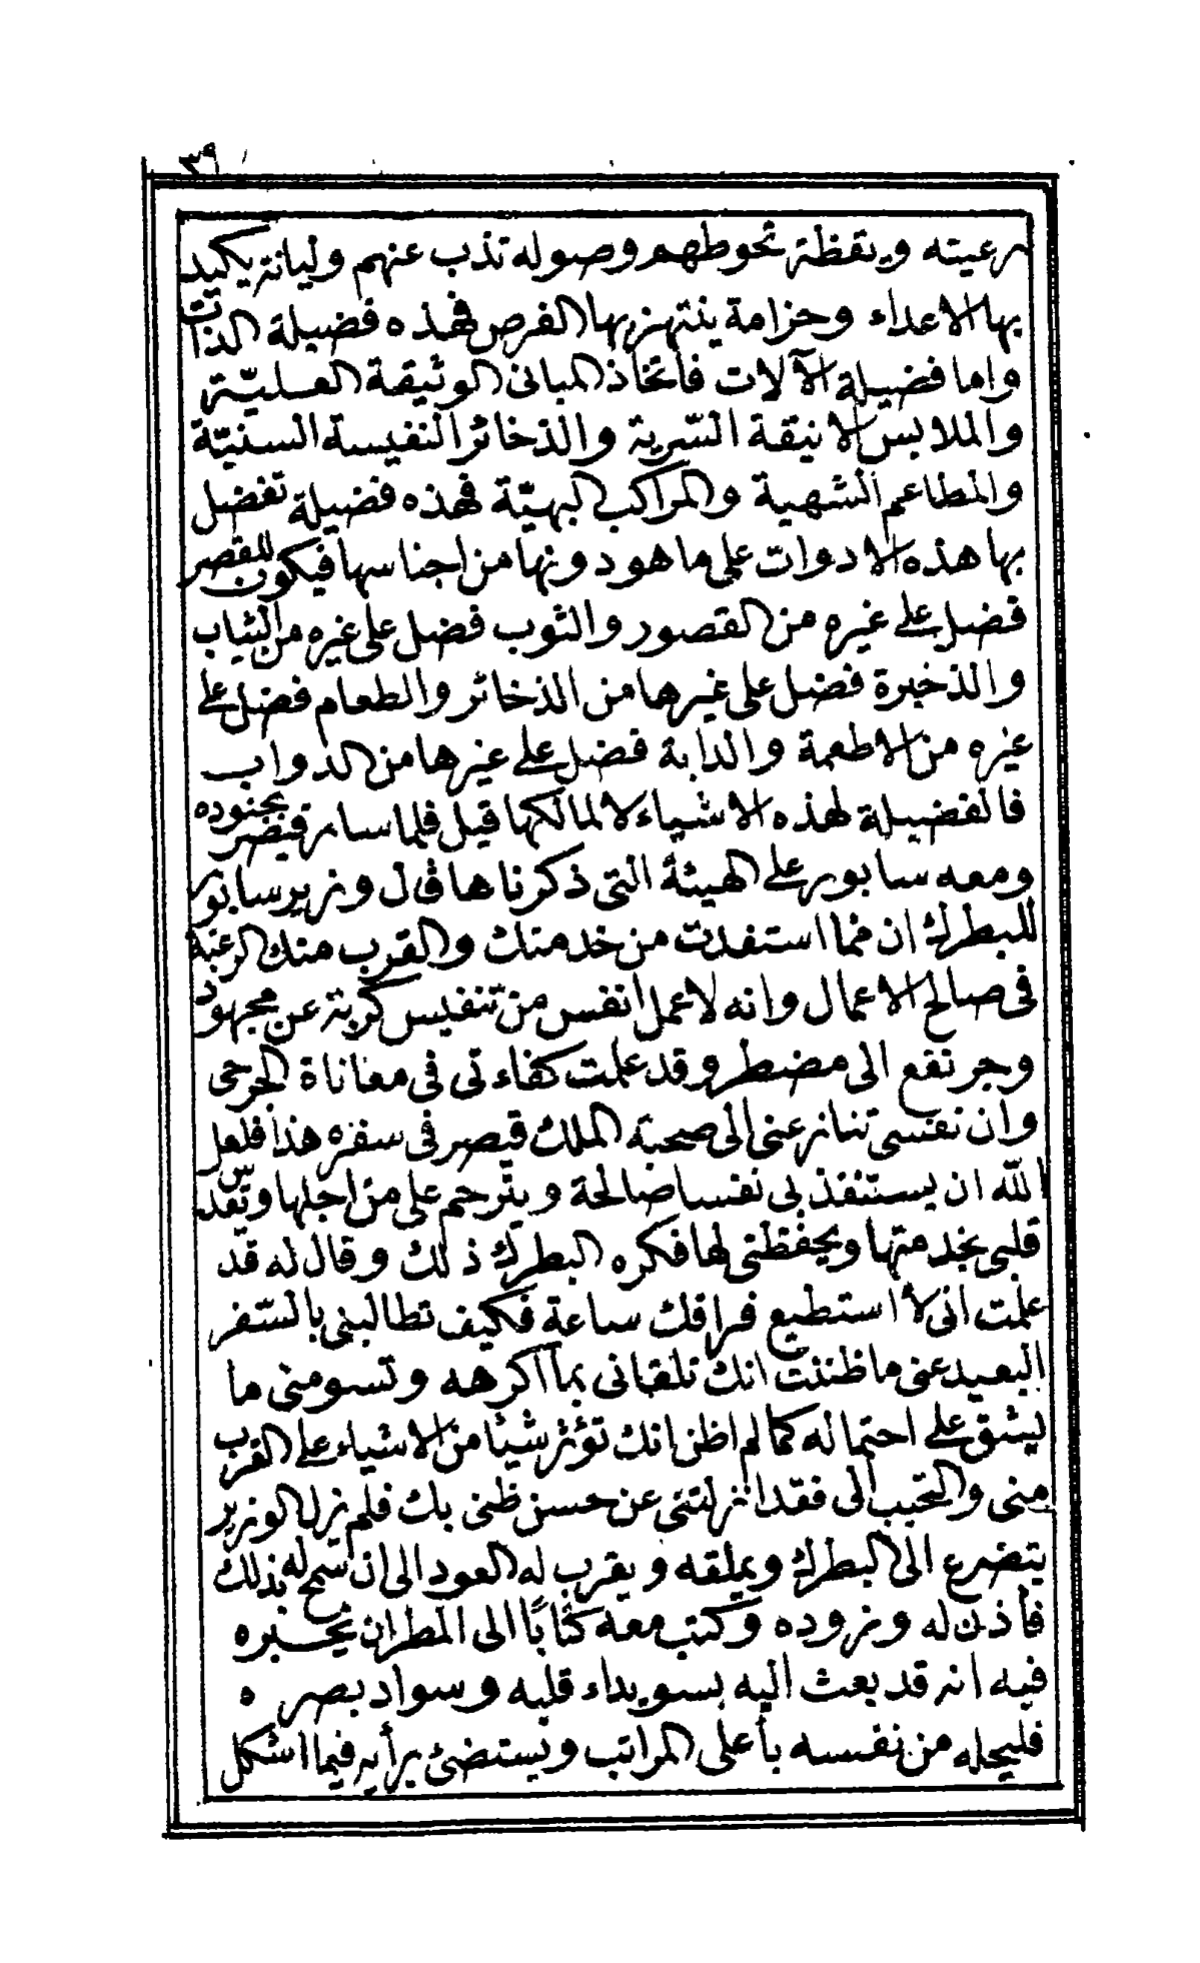 ٣٩
رعيته ويقظة تحوطهم وصوله تذب عنهم ولبانة يكيد
بها الاعداء وحزامة ينتهز بها الفرص فهذه فضيلة الذات
واما فضيلة الآلات فاتخاذ المبانى الوثيقة العليّة
والملابس الانيقة السّرية والذخائر النفيسة السنيّة
والمطاعم الشهية والمراكب البهيّة فهذه فضيلة تفضل
بها هذه الادوات على ما هو دونها من اجناسها فيكون للقصر
فضل على غيره من القصور والثوب فضل على غيره من الثياب
والذخيرة فضل على غيرها من الذخائر والطعام فضل على
غيره من الاطعمة والدابة فضل على غيرها من الدواب
فالفضيلة لهذه الاشياء لا لمالكها قيل فلما سار قيصر بجنوده
ومعه سابور على الهيئة التى ذكرناها قال وزير سابور
للبطرك ان مما استفدت من خدمتك والقرب منك الرغبة
فى صالح الاعمال وانه لا عمل انفس من تنفيس كربة عن مجهود
وجر نفع الى مضطر وقد علمت كفاءتى فى معاناة الجرحى
وان نفسى تنازعنى الى صحبة الملك قيصر فى سفره هذا فلعل
الله ان يستنقذ بى نفسا صالحة ويترحم على من اجلها ويقدس
قلبى بخدمتها ويحفظنى لها فكره البطرك ذلك وقال له قد
علمت انى لا استطيع فراقك ساعة فكيف تطالبنى بالسّفر
البعيد عنى ما ظننت انك تلقانى بما اكرهه وتسومنى ما
يشق على احتماله كما لم اظن انك تؤثر شيئا من الاشياء على القرب
منى والتحبب الى فقد انزلتنى عن حسن ظنى بك فلم يزل الوزير
يتضرع الى البطرك ويملقه ويقرب له العود الى ان سمح له بذلك
فأذن له وزوده وكتب معه كتابًا الى المطران يخبره
فيه انه قد بعث اليه بسويداء قلبه وسواد بصره
فليحله من نفسه بأعلى المراتب ويستضئ برأيه فيما اشكل